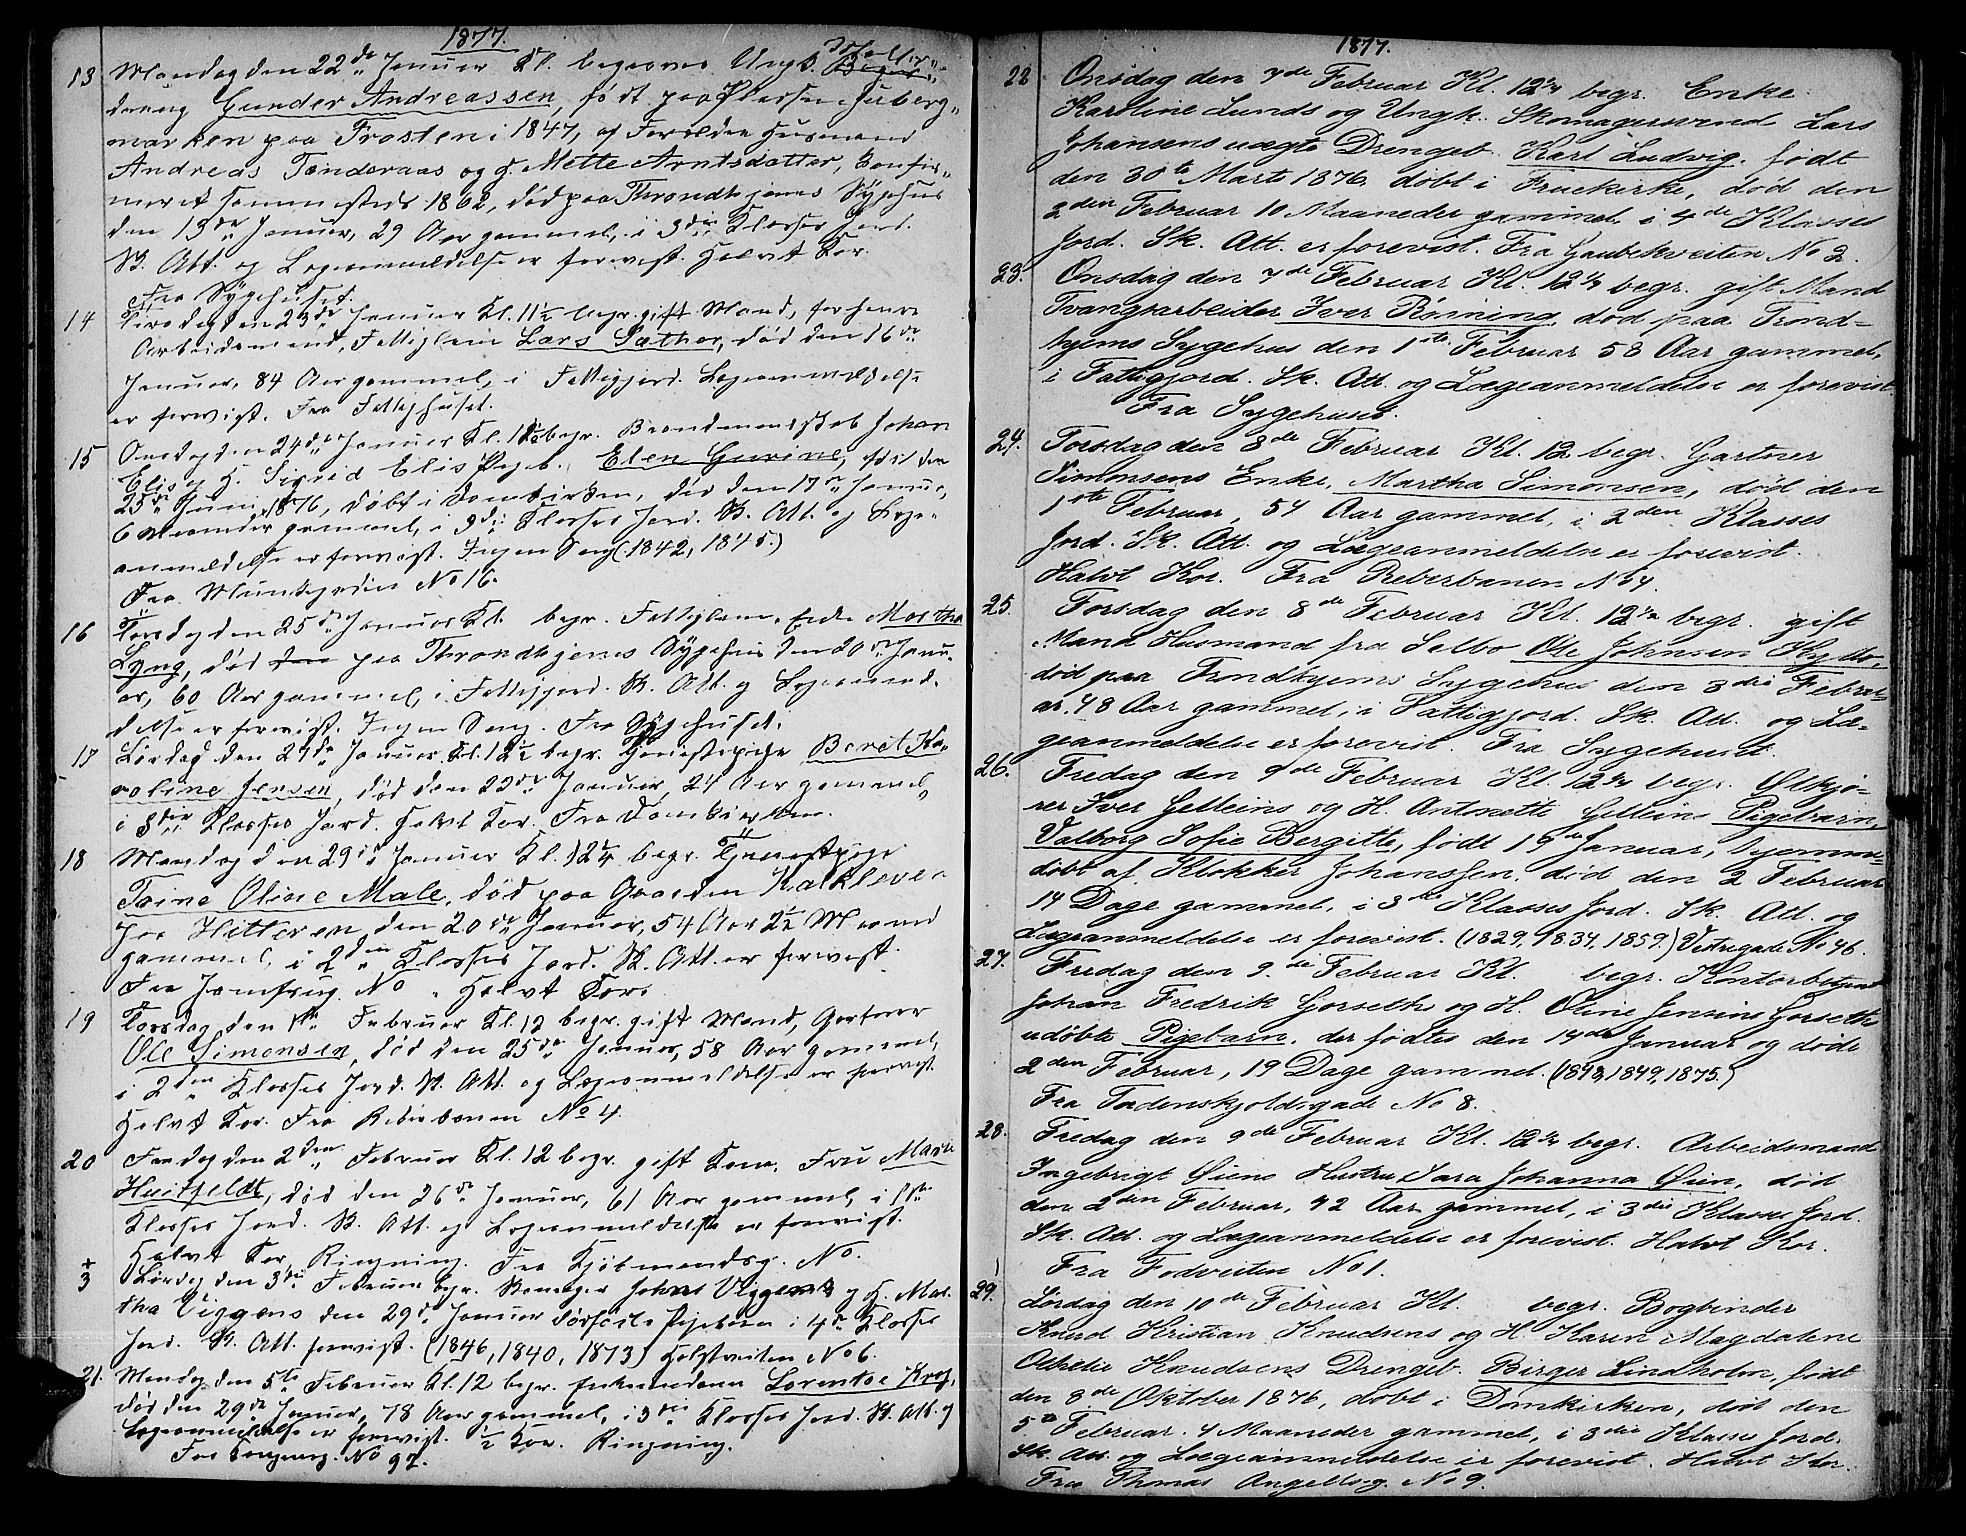 1877.
13 Mandag den 22de Januar Kl. begraves Ungk.
dreng Gunder Andreassen, født paa Pladsen
marken paa Frosten i 1847, af Forældre Husmand
Andreas Tønderaas og H. Mette Arntsdatter, Konfir-
meret sammesteds 1862, død paa Throndhjems Sygehus
den 13de Januar, 29 Aar gammel, i 3die Klasses Jord.
Sk. Att. og Lægeanmeldelse er forevist. Halvt Kor.
Fra Sygehuset.
14 Tirsdag den 23de Januar Kl. 11½ begr. gift Mand, forhenv.
Arbeidsmand, Fattiglem Lars Sæther, død den 16de
Januar, 84 Aar gammel, i Fattigjord. Lægeanmeldelse
er forevist. Fra Fattighuset.
15 Onsdag den 24de Januar Kl. 12½ begr. Brandmandskab Johan
Elis og H. Sigrid Elis Pigeb. Elen Gurine, født den
25de Juni 1876, døbt i Domkirken, død den 17de Janua,
6 Maaneder gammel, i 3die Klasses Jord. Sk. Att. og Læge-
anmeldelse er forevist. Ingen Sang. (1842, 1845.)
Fra Munkegaden No 16.
16 Torsdag den 25de Januar Kl. begr. Fattiglem, Enke Martha
Lyng, død den paa Throndhjems Sygehus den 20de Janu-
ar, 60 Aar gammel, i Fattigjord. Sk. Att. og Lægeanmel-
delse er forevist. Ingen Sang. Fra Sygehuset.
17 Lørdag den 27de Januar Kl. 12½ begr. Tjenestepige Beret Ka-
roline Jensen, død den 23de Januar, 21 Aar gammel,
i 3die Klasses Jord. Halvt Kor. Fra Domkirken.
18 Mandag den 29de Januar Kl. 12¼ begr. Tjenestpige
Trine Oline Male, død paa Gaarden Kalkleven
paa Hitteren, den 20de Januar, 54 Aar 2½ Maaned
gammel, i 2den Klasses Jord. Sk. Att. er forevist.
Fra Jomfrug. No . Halvt Kor.
19 Torsdag den 1ste Februar Kl. 12 begr. gift Mand, Gartner
Ole Simonsen, død den 25de Januar, 58 Aar gammel,
i 2den Klasses Jord. Sk. Att. og Lægeanmeldelse er forevist.
Halvt Kor. Fra Reberbanen No 4.
20 Fredag den 2den Februar Kl. 12 begr. gift Kone, Fru Marie
Huitfeldt, død den 26de Januar, 61 Aar gammel, i 1ste
Klasses Jord. Sk. Att. og Lægeanmeldelse er forevist.
Halvt Kor. Ringning. Fra Kjøbmandsg. No.
+
3 Lørdag den 3die Februar begr. Skomager Johns Viggens og H. Mar-
tha Viggens den 29de Januar dødfødte Pigebarn i 4de Klasses
Jord. Sk. Att. forevist. (1846, 1840, 1873) Holstveiten No 6.
21. Mandag den 5te Februar Kl. 12 begr. Enkemadam Lorentse Krog,
død den 29de Januar, 78 Aar gammel, i 3die Klasses Jord. Sk. Att. og
Lægeanmeldelse er forevist. ½ Kor. Ringning.
Fra Kongensg. No 97.
1877.
22 Onsdag den 7de Februar Kl. 12¼ begr. Enke
Karoline Lunds og Ungk. Skomagersvend Lars
Johansens uægte Drengeb. Karl Ludvig, født
den 30te Marts 1876, døbt i Fruekirke, død den
2den Februar 10 Maaneder gammel i 4de Klasses
Jord. Sk. Att. er forevist. Fra Gaubekveiten No 2.
23. Onsdag den 7de Februar Kl. 12¼ begr. gift Mand
Tvangsarbeider Iver Rønning, død paa Trond-
hjems Sygehus den 1ste Februar 58 Aar gammel,
i Fattigjord. Sk. Att. og Lægeanmeldelse er forevist.
Fra Sygehuset.
24. Torsdag den 8de Februar Kl. 12 begr. Gartner
Simonsens Enke, Martha Simonsen, død den
1ste Februar, 54 Aar gammel, i 2den Klasses
Jord. Sk. Att. og Lægeanmeldelse er forevist.
Halvt Kor. Fra Reberbanen No 4.
25. Torsdag den 8de Februar Kl. 12¼ begr. gift
Mand Husmand fra Selbo Ole Johnsen Kyllo,
død paa Trondhjems Sygehus den 3die Febru-
ar, 48 Aar gammel, i Fattigjord. Sk. Att. og Læ-
geanmeldelse er forevist. Fra Sygehuset.
26. Fredag den 9de Februar Kl. 12¼ begr. Ølkjø-
rer Iver Gelleins og H. Antonette Gelleins Pigebarn,
Valborg Sofie Bergitte, født 19de Januar, hjemme-
døbt af Klokker Johanssen, død den 2 Februar
14 Dage gammel, i 3die Klasses Jord. Sk. Att. og
Lægeanmeldelse er forevist. (1829, 1834, 1859.) Vestregade No 46.
27. Fredag den 9de Februar Kl. begr. Kontorbetjent
Johan Fredrik Gorseths og H. Oline Jensine Gorseths
udøbte Pigebarn, der fødtes den 14de Januar og døde
2den Februar, 19 Dage gammel. (1843, 1849, 1875.)
Fra Tordenskjoldsgade No 8.
28. Fredag den 9de Februar Kl. 12¼ begr. Arbeidsmand
Ingebrigt Øiens Hustru Sara Johanna Øien, død
den 2den Februar, 42 Aar gammel, i 3die Klasses Jord.
Sk. Att. og Lægeanmeldelse er forevist. Halvt Kor.
Fra Fodveiten No 1.
29. Lørdag den 10de Februar Kl. begr. Bogbinder
Knud Kristian Knudsens og H. Karen Magdalene
Othelie Knudsens Drengeb. Birger Lindholm, født
den 8de Oktober 1876, døbt i Domkirken, død den
5te Februar. 4 Maaneder gammel, i 3die Klasses Jord.
Sk. Att. og Lægeanmeldelse er forevist. Halvt Kor.
Fra Thomas Angellsg. No 9.